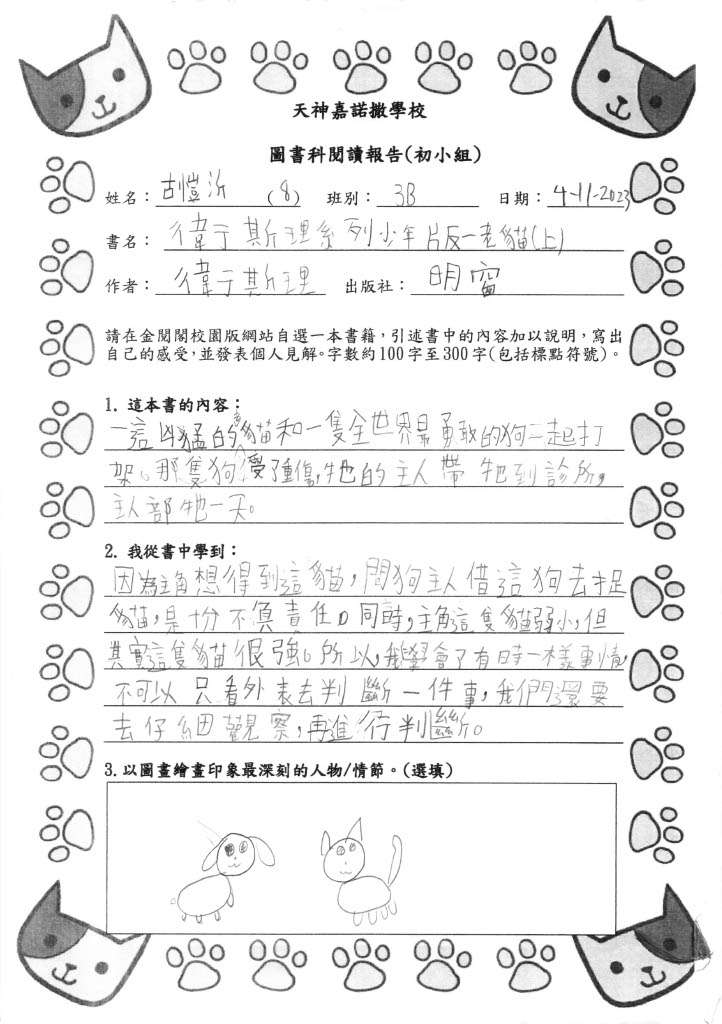 天神嘉諾撒學校
圖書科閱讀報告(初小組)
姓名：古愷沂 (8) 班別：3B 日期：4-11-2023
書名：衛斯理系列少年版—老貓(上)
作者：衛斯理 出版社：明窗
請在金閱閣校園版網站自選一本書籍，引述書中的內容加以說明，寫出
自己的感受，並發表個人見解。字數約100字至300字(包括標點符號)。
1. 這本書的內容：
一這凶猛的老貓和一隻全世界最勇敢的狗一起打
架。那隻狗受重傷，牠的主人帶牠到診所，
主人部牠一天。
2. 我從書中學到：
因為主角想得到這貓，問狗主人借這狗去捉
貓，是十分不負責任。同時，主角這隻貓弱小，但
其實這隻貓很強。所以，我學會了有時一樣事情，
不可以只看外表去判斷一件事，我們還要
去仔細觀察，再進行判斷。
3. 以圖畫繪畫印象最深刻的人物/情節。(選填)